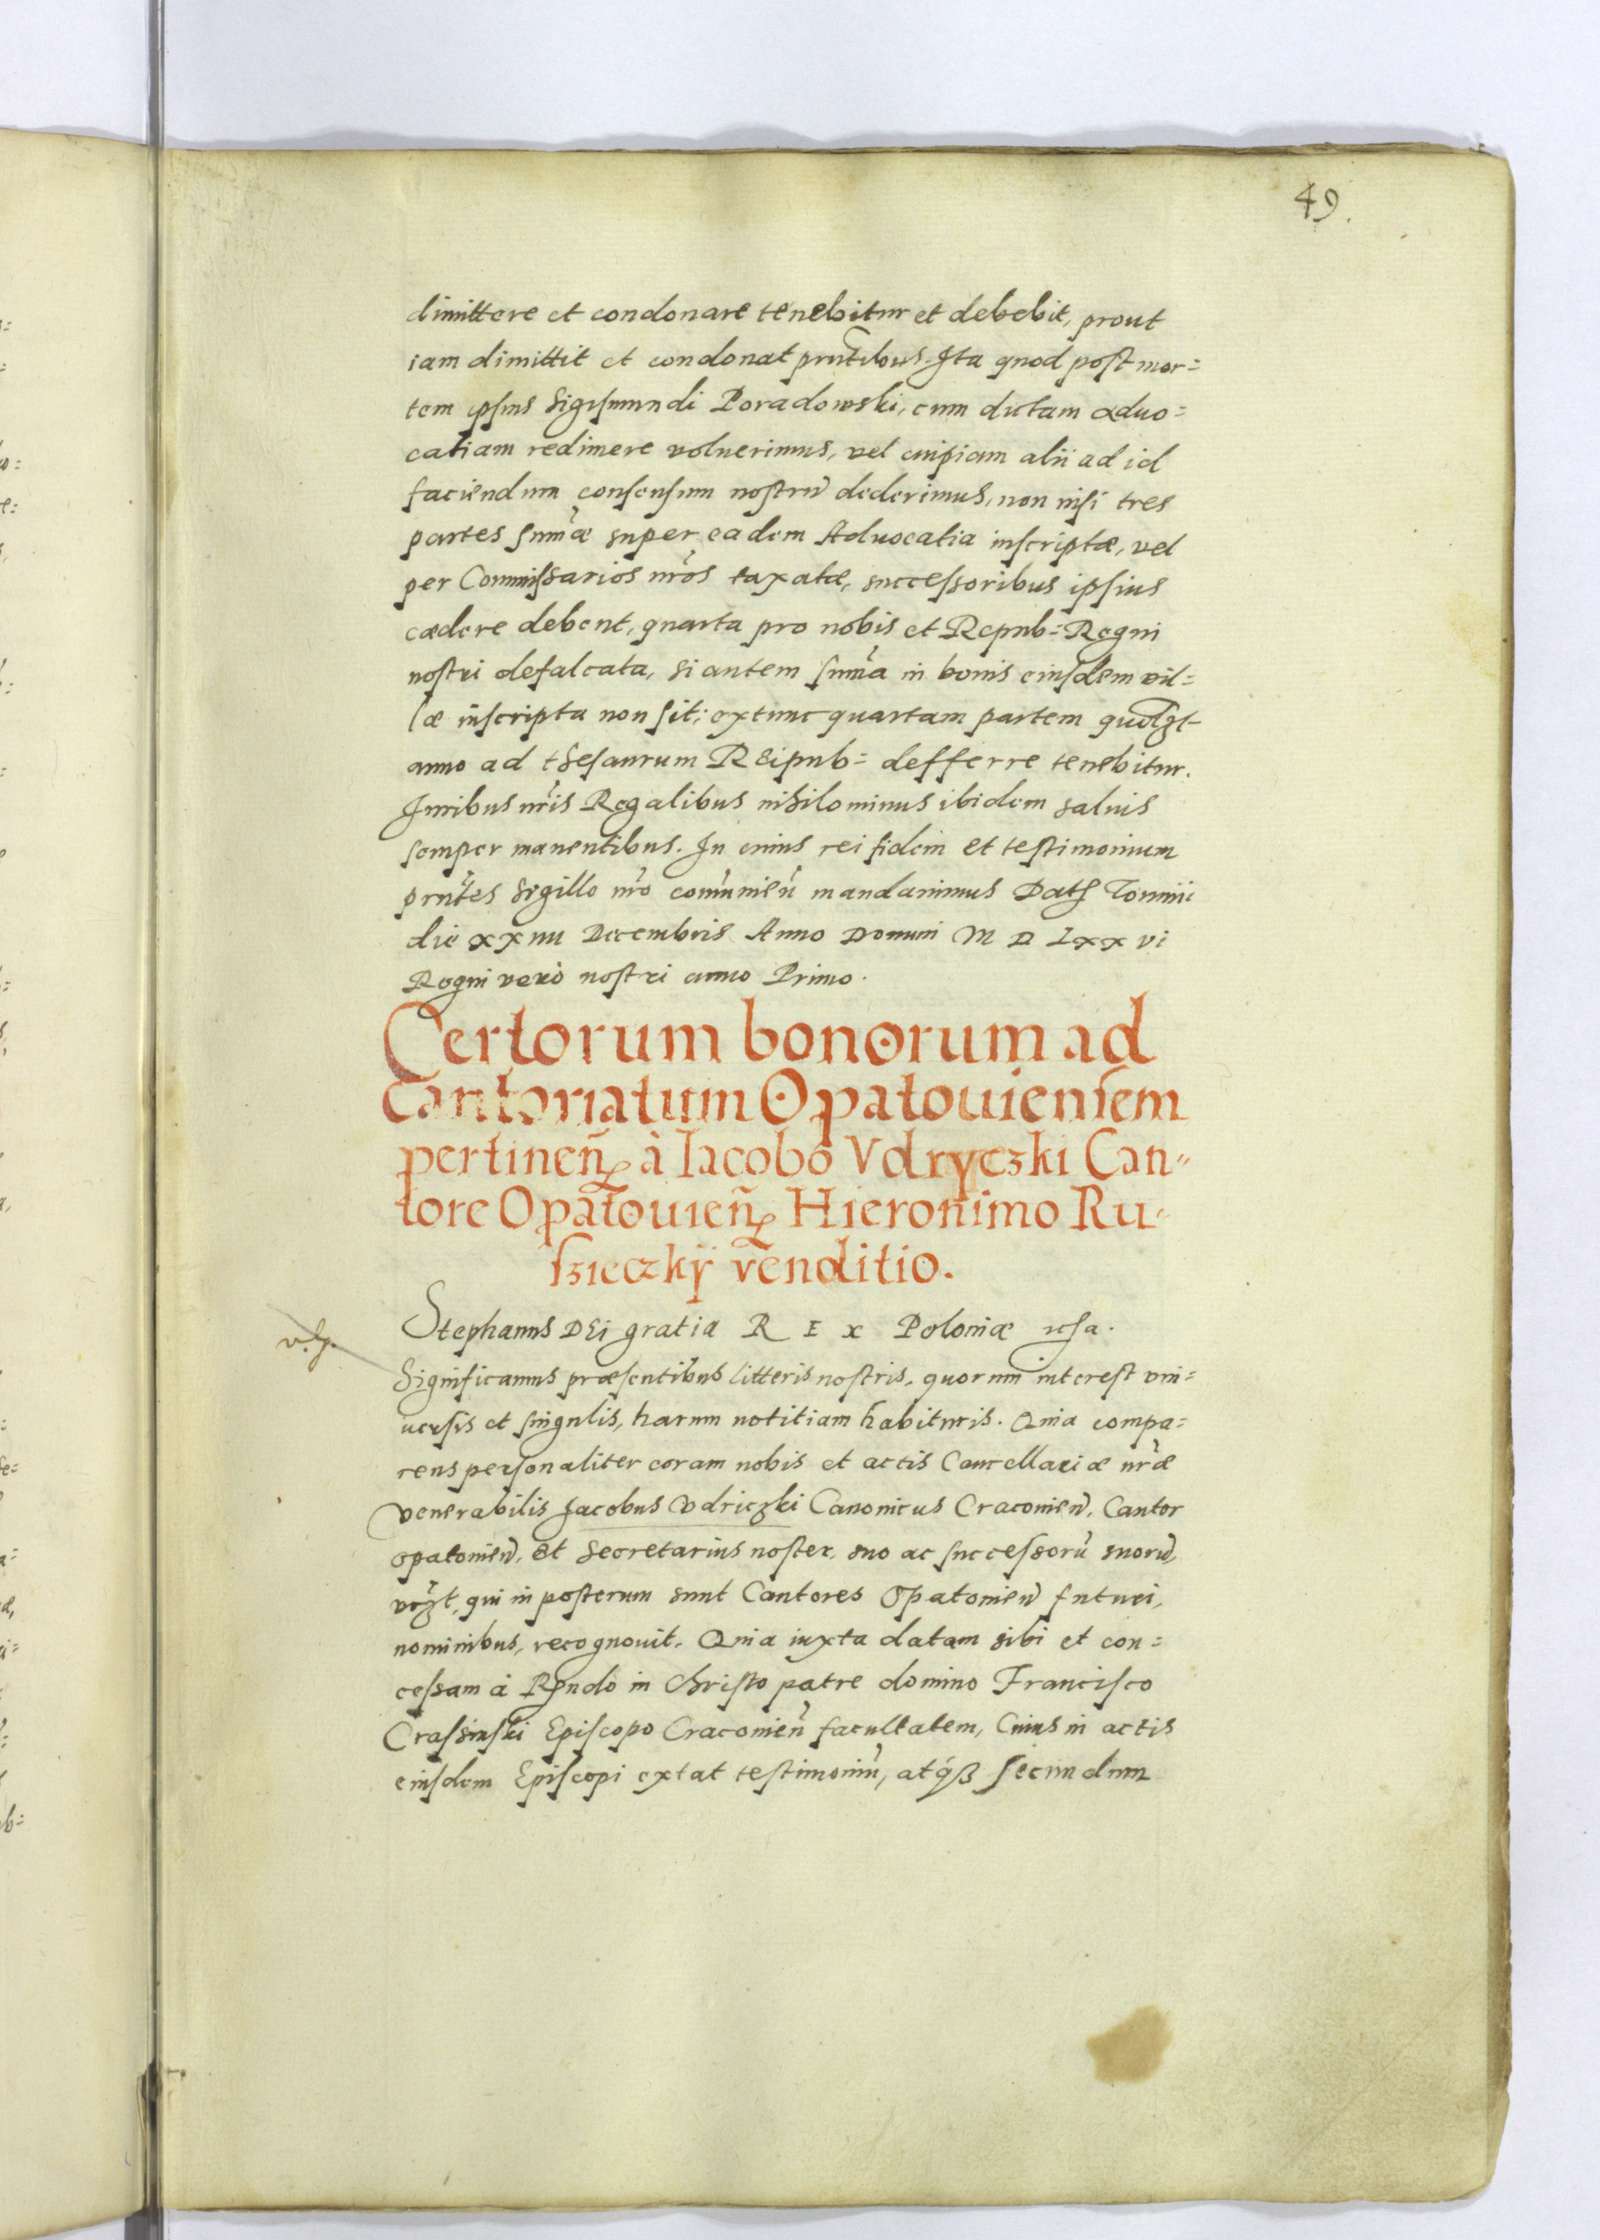 49.
dimittere et condonare tenebitur et debebit, prout
iam dimittit et condonat prñtibus. Ita quod post mor=
tem ipsius Sigismundi Poradowski, cum dictam aduo=
catiam redimere voluerimus, vel cuipiam alii ad id
faciendum consensum nostrũ dederimus, non nisi tres
partes sum̃æ super eadem Aduocatia inscriptæ, vel
per Commissarios nr̃os taxatæ, successoribus ipsius
cædere debent, quarta pro nobis et Repub= Regni
nostri defalcata, si autem sum̃a in bonis eiusdem vil=
læ inscripta non sit; extunc quartam partem
anno ad thesaurum Reipub= defferre tenebitur.
Iuribus nr̃is Regalibus nihilominus ibidem saluis
semper manentibus. In cuius rei fidem et testimonium
prñtes sigillo nr̃o com̃unieñ mandauimus Dat
die Decembris Anno Domini M D Lxx vi
Regni verò nostri anno Primo.
Certorum bonorum ad
Cantoriatum Opatouiensem
pertineñ à Iacobo Vdryczki Can=
tore Opatouieñ Hieronimo Ru=
szieczkÿ venditio.
Stephanus DEi gratia R E x Poloniæ
Significamus præsentibus litteris nostris, quorum interest vni=
uersis et singulis, harum notitiam habituris. Quia compa=
rens personaliter coram nobis et actis Cancellariæ nr̃æ
venerabilis Jacobus Vdriczki Canonicus Cracouieñ, Cantor
Opatouieñ, Et Secretarius noster, suo ac successorũ suorũ,
qui in posterum sunt Cantores Opatouieñ futuri,
nominibus, recognouit. Quia iuxta datam sibi et con=
cessam à Rndo in Christo patre domino Francisco
Crassinski Episcopo Cracouieñ facultatem, Cuius in actis
eiusdem Episcopi extat testimoniũ, atq́ꝫ secundum